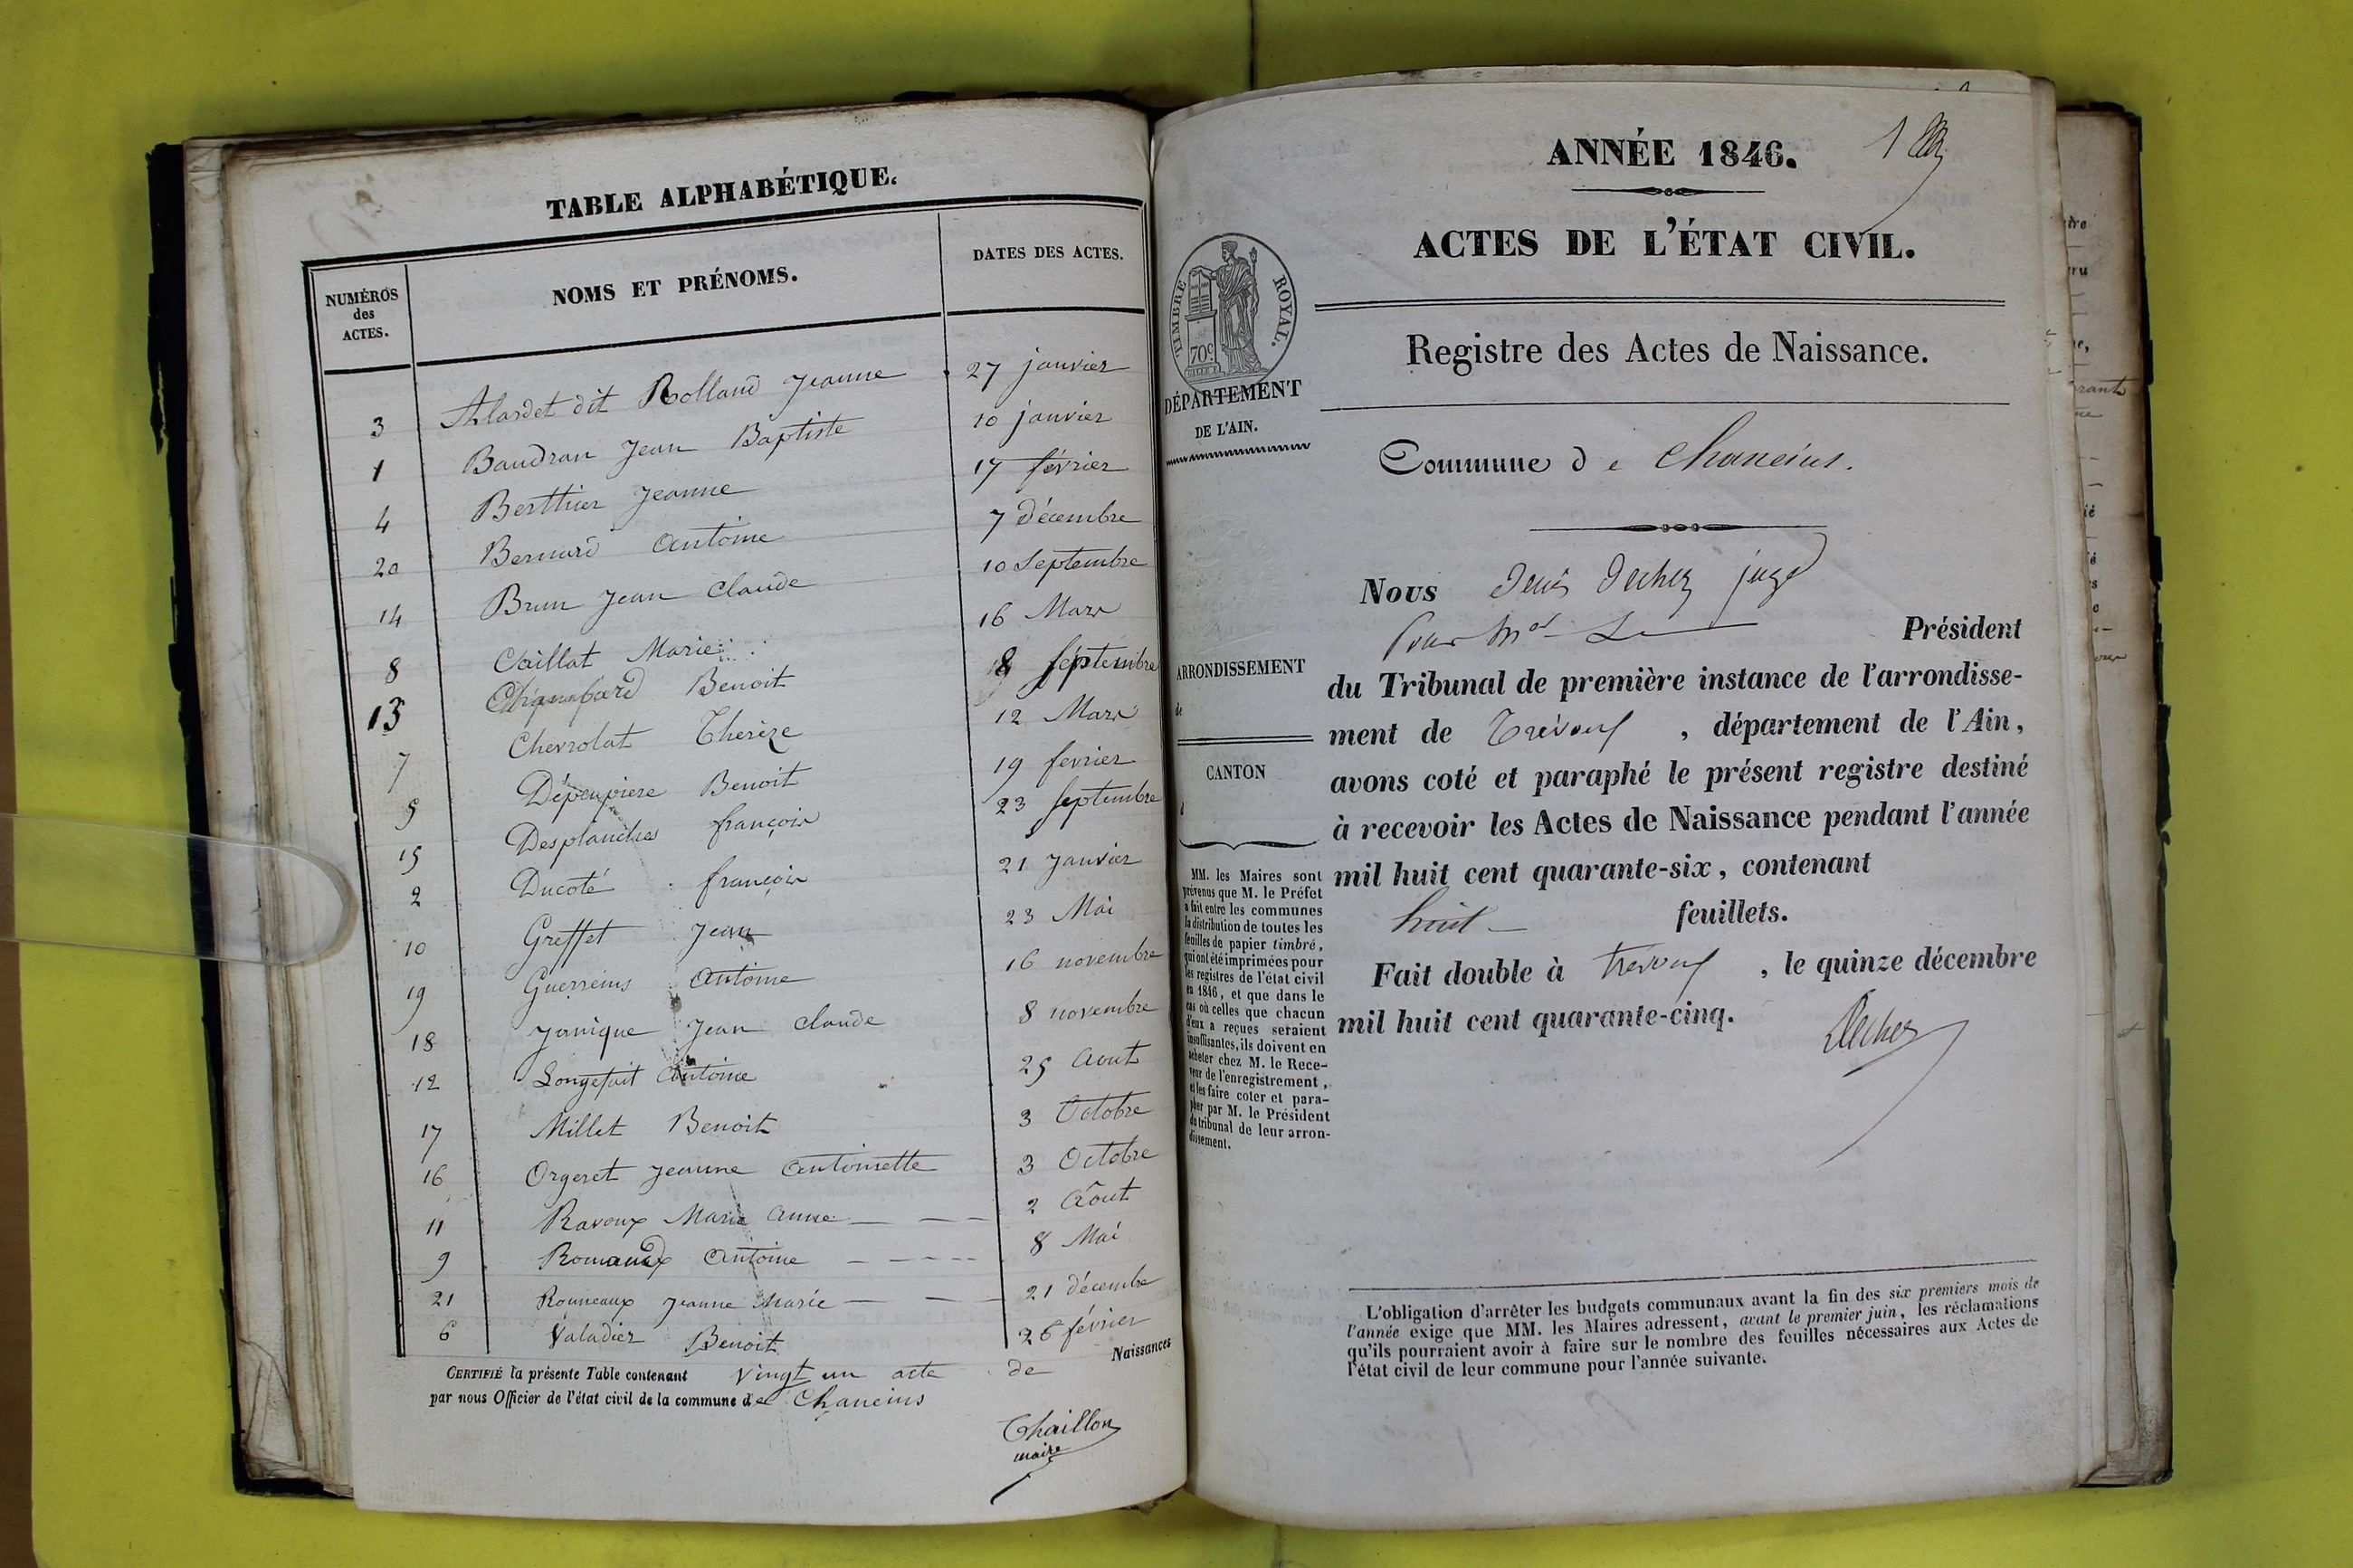 TABLE ALPHABÉTIQUE.
NUMÉROS des ACTES. NOMS ET PRÉNOMS. DATES DES ACTES.
3 Alardet dit Rolland Jeanne 27 janvier
1 Baudran Jean Baptiste 10 janvier
4 Berthier Jeanne 17 février
20 Bernard Antoine 7 décembre
14 Brun Jean Claude 10 Septembre
8 Caillat Marie 16 Mars
13 Benoit 8 Septembre
7 Chevrolat Thérèze 12 Mars
5 Dépeupiere Benoit 19 fevrier
15 Desplanches françois 23 Septembre
2 Ducoté françois 21 Janvier
10 Greffet Jean 23 Mai
19 Guerreins Antoine 16 novembre
18 Janique Jean Claude 8 novembre
12 Longefait Antoine 25 Aout
17 Millet Benoit 3 Octobre
16 Orgeret Jeanne Antoinette 3 Octobre
11 Ravoux Marie Anne 2 Aout
9 Romand Antoine 8 Mai
21 Ronneaux Jeanne Marie 21 décembre
6 Valadier Benoit 26 février
CERTIFIÉ la présente Table contenant vingt un acte de Naissances
par nous Officier de l'état civil de la commune de Chaneins
Chaillon
maire
1
ANNÉE 1846.
ACTES DE L'ÉTAT CIVIL.
TIMBRE ROYAL.
70c
DÉPARTEMENT
DE L'AIN.
Registre des Actes de Naissance.
Commune de Chaneins.
Nous Denis Dechez juge
Pour Mr Le Président
du Tribunal de première instance de l'arrondisse-
ment de Trévoux, département de l'Ain,
avons coté et paraphé le présent registre destiné
à recevoir les Actes de Naissance pendant l'année
mil huit cent quarante-six, contenant
huit feuillets.
Fait double à Trevoux, le quinze décembre
mil huit cent quarante-cinq.
Dechez
ARRONDISSEMENT
de
CANTON
d
MM. les Maires sont
prévenus que M. le Préfet
a fait entre les communes
la distribution de toutes les
feuilles de papier timbré,
qui ont été imprimées pour
les registres de l'état civil
en 1846, et que dans le
cas où celles que chacun
d'eux a reçues seraient
insuffisantes, ils doivent en
acheter chez M. le Rece-
veur de l'enregistrement,
et les faire coter et para-
pher par M. le Président
du tribunal de leur arron-
dissement.
L'obligation d'arrêter les budgets communaux avant la fin des six premiers mois de
l'année exige que MM. les Maires adressent, avant le premier juin, les réclamations
qu'ils pourraient avoir à faire sur le nombre des feuilles nécessaires aux Actes de
l'état civil de leur commune pour l'année suivante.